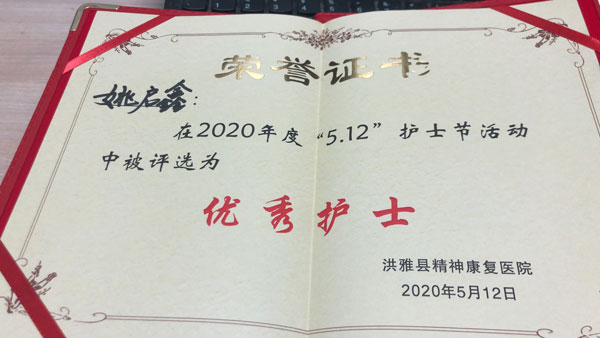 荣誉证书
姚启鑫：
在2020年度“5.12”护士节活动
中被评选为
优秀护士
洪雅县精神康复医院
2020年5月12日